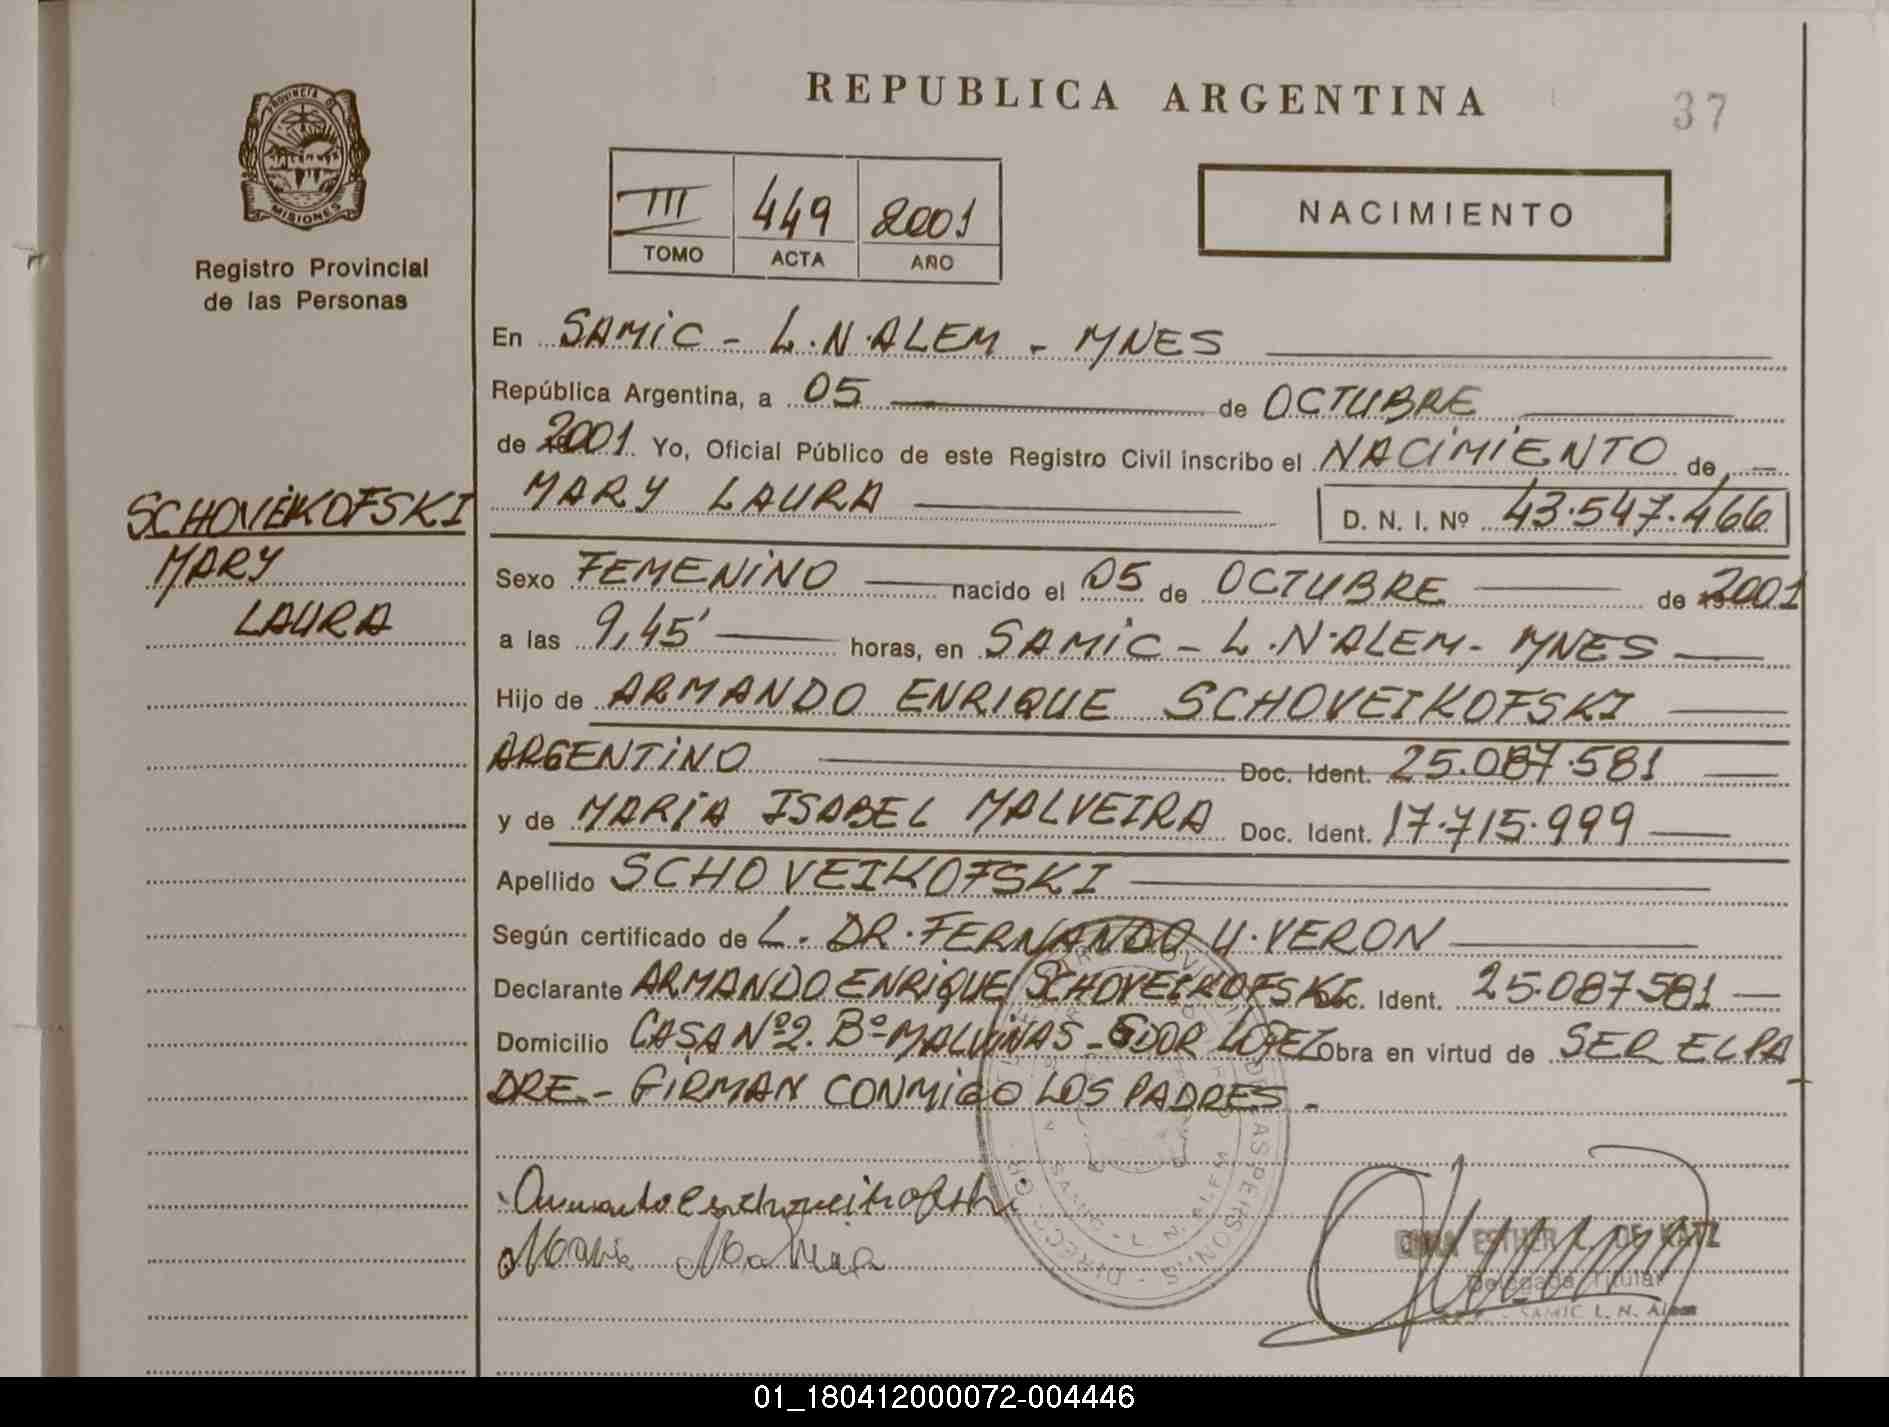 REPUBLICA ARGENTINA
37
PROVINCIA DE
MISIONES
Registro Provincial
de las Personas
III 449 2001
TOMO ACTA AÑO
NACIMIENTO
En SAMIC - L.N.ALEM - MNES
República Argentina, a 05 de OCTUBRE
de 2001. Yo, Oficial Público de este Registro Civil inscribo el NACIMIENTO de
MARY LAURA D. N. I. Nº 43.547.466
SCHOVEIKOFSKI
MARY
LAURA
Sexo FEMENINO nacido el 05 de OCTUBRE de 2001
a las 9,45' horas, en SAMIC - L.N.ALEM - MNES
Hijo de ARMANDO ENRIQUE SCHOVEIKOFSKI
ARGENTINO Doc. Ident. 25.087.581
y de MARIA ISABEL MALVEIRA Doc. Ident. 17.715.999
Apellido SCHOVEIKOFSKI
Según certificado de L. DR. FERNANDO U. VERON
Declarante ARMANDO ENRIQUE SCHOVEIKOFSKI Doc. Ident. 25.087.581
Domicilio CASA Nº2. Bº MALVINAS - GDOR LOPEZ Obra en virtud de SER EL PA
DRE.- FIRMAN CONMIGO LOS PADRES.-
ESTHER L. DE KATZ
Delegada Titular
SAMIC L. N. Alem
01_180412000072-004446